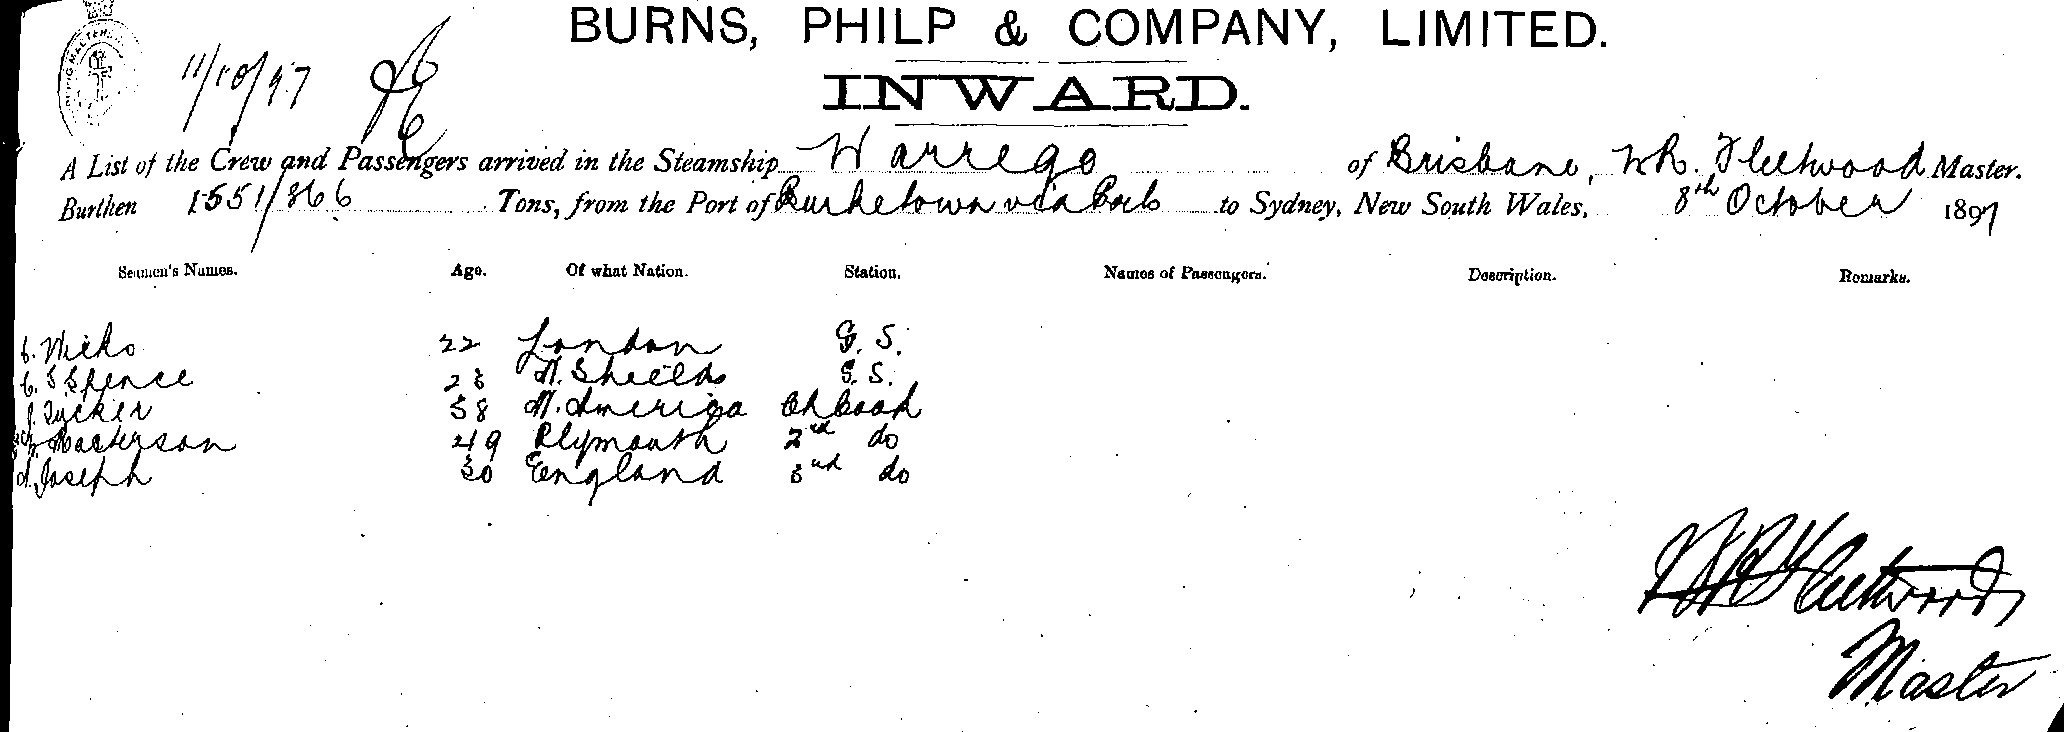 BURNS, PHILP & COMPANY, LIMITED.
11/10/97
INWARD.
A List of the Crew and Passengers arrived in the Steamship Warrego of Brisbane, WR. Fleetwood Master.
Burthen 1551/866 Tons, from the Port of Burketown via Ports to Sydney, New South Wales, 8th October 1897
Seamen's Names. Age. Of what Nation. Station. Names of Passengers. Description. Remarks.
22 London G. S.
C. S Spence 23 N. Shields G. S.
J. Tucker 38 N. America Ch Cook
49 Plymouth 2nd do
A. Joseph 30 England 3rd do
WR Fleetwood
Master